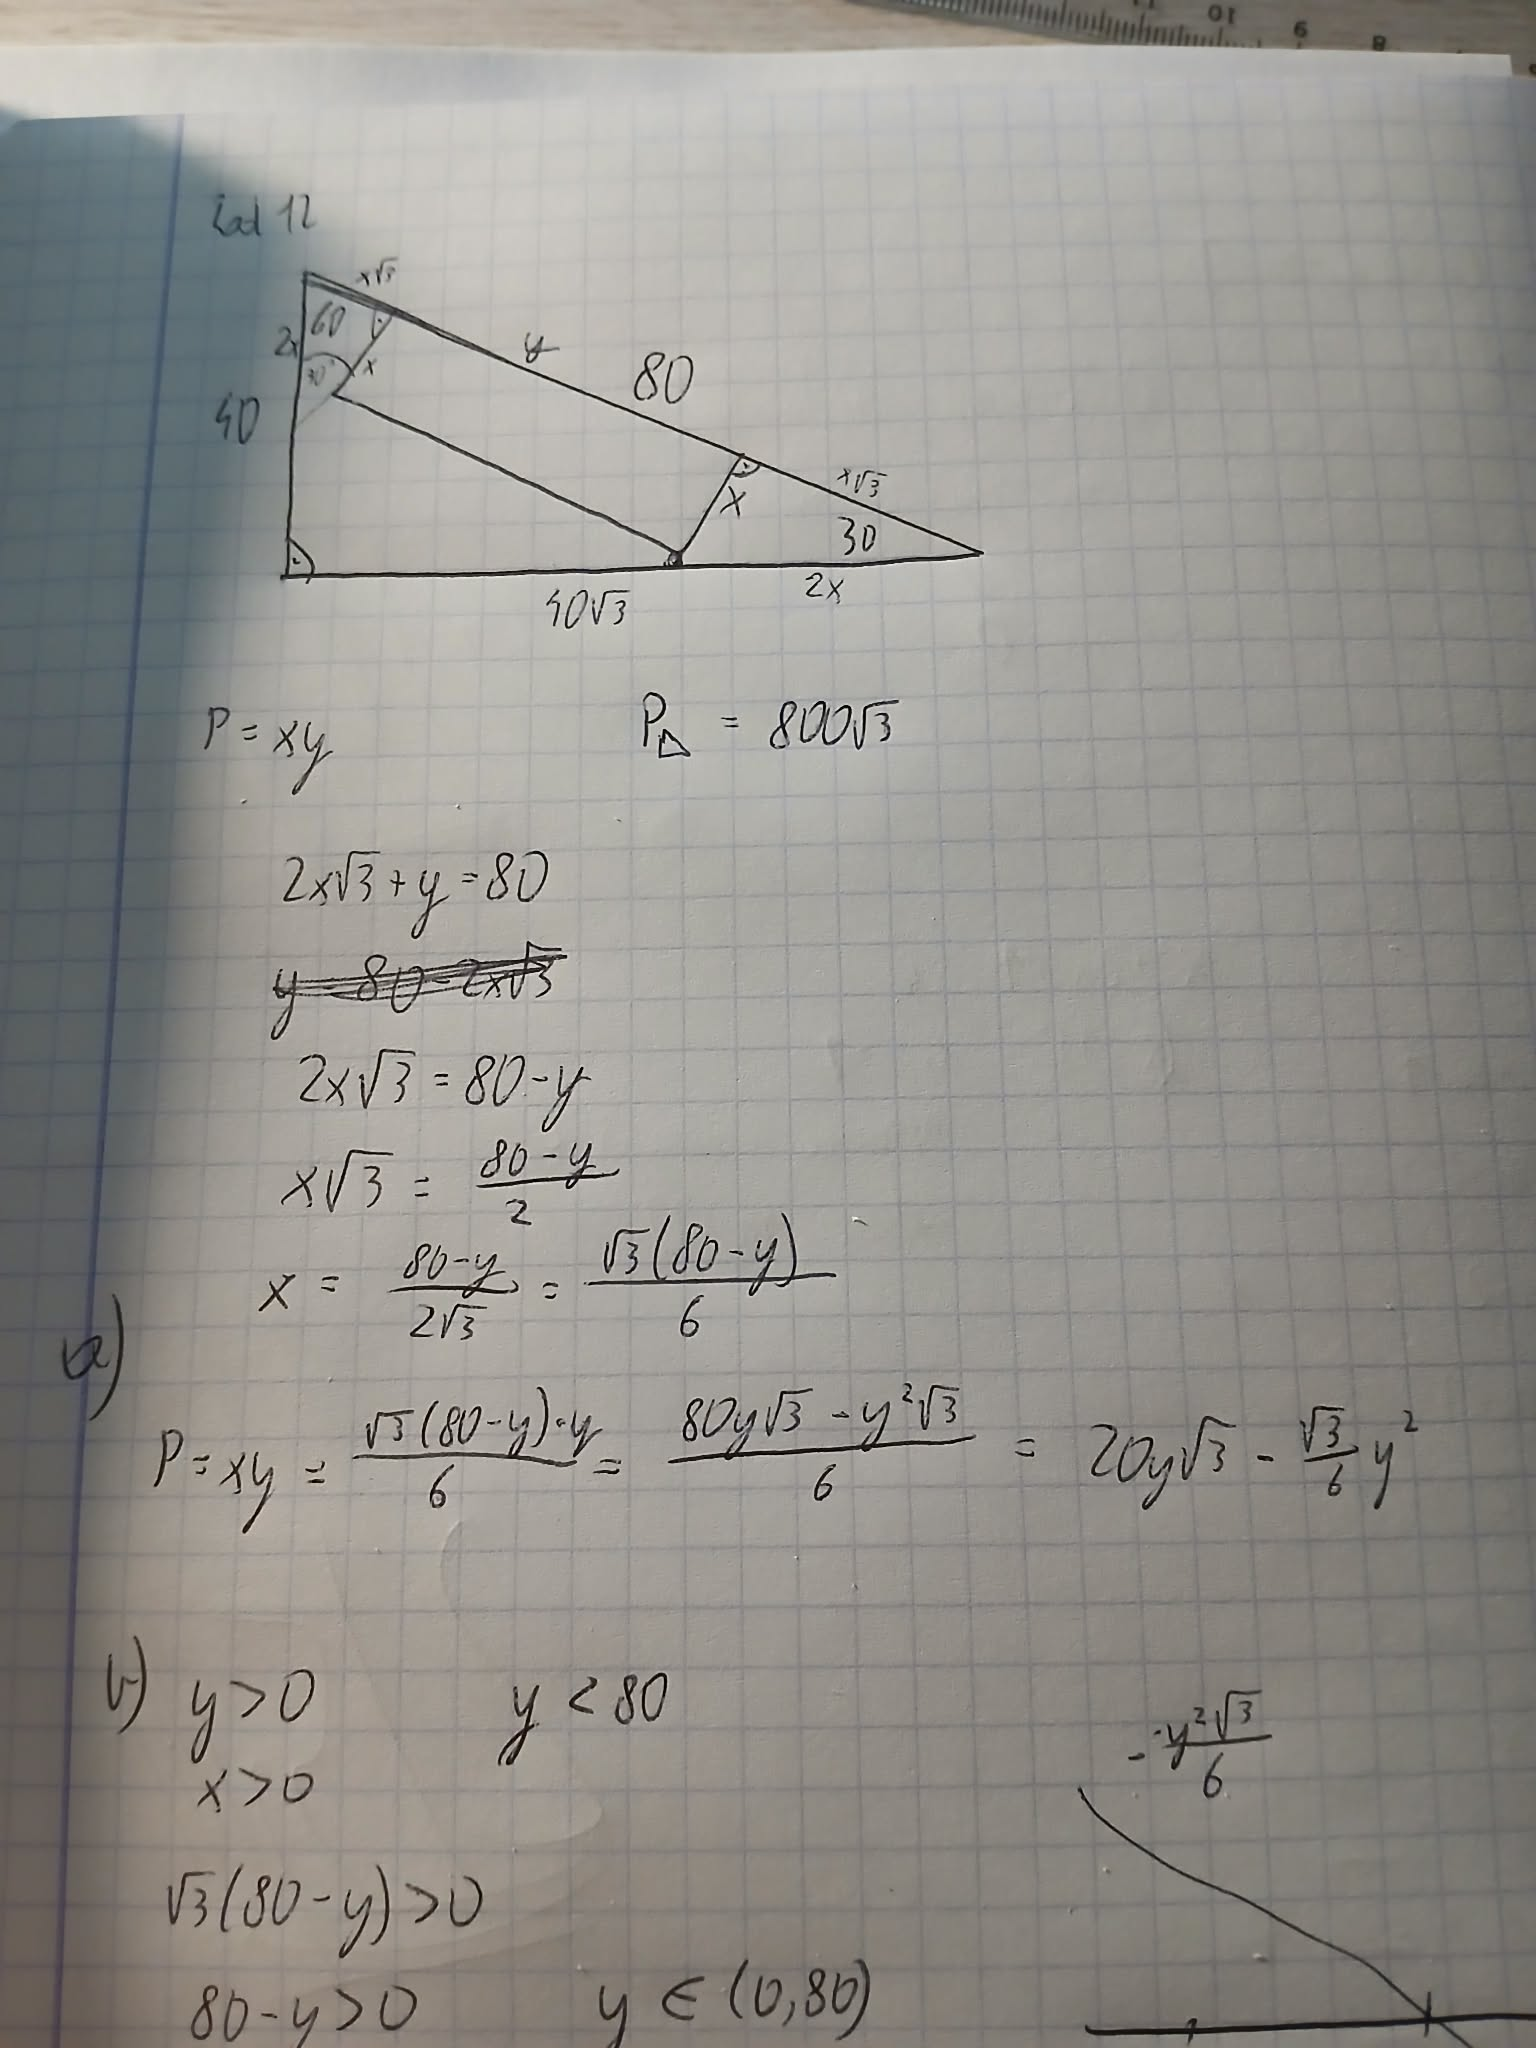 11 10 9 8
Zad 12
x√3
2x 60 y 80
30° x
40
x x√3
30
40√3 2x
P = xy P△ = 800√3
2x√3 + y = 80
y = 80 - 2x√3
2x√3 = 80 - y
x√3 = (80 - y)/2
x = (80 - y)/(2√3) = √3(80 - y)/6
a)
P = xy = √3(80 - y)·y/6 = (80y√3 - y²√3)/6 = 20y√3 - √3/6 y²
b) y > 0 y < 80
x > 0 - -y²√3/6
√3(80 - y) > 0
80 - y > 0 y ∈ (0,80)